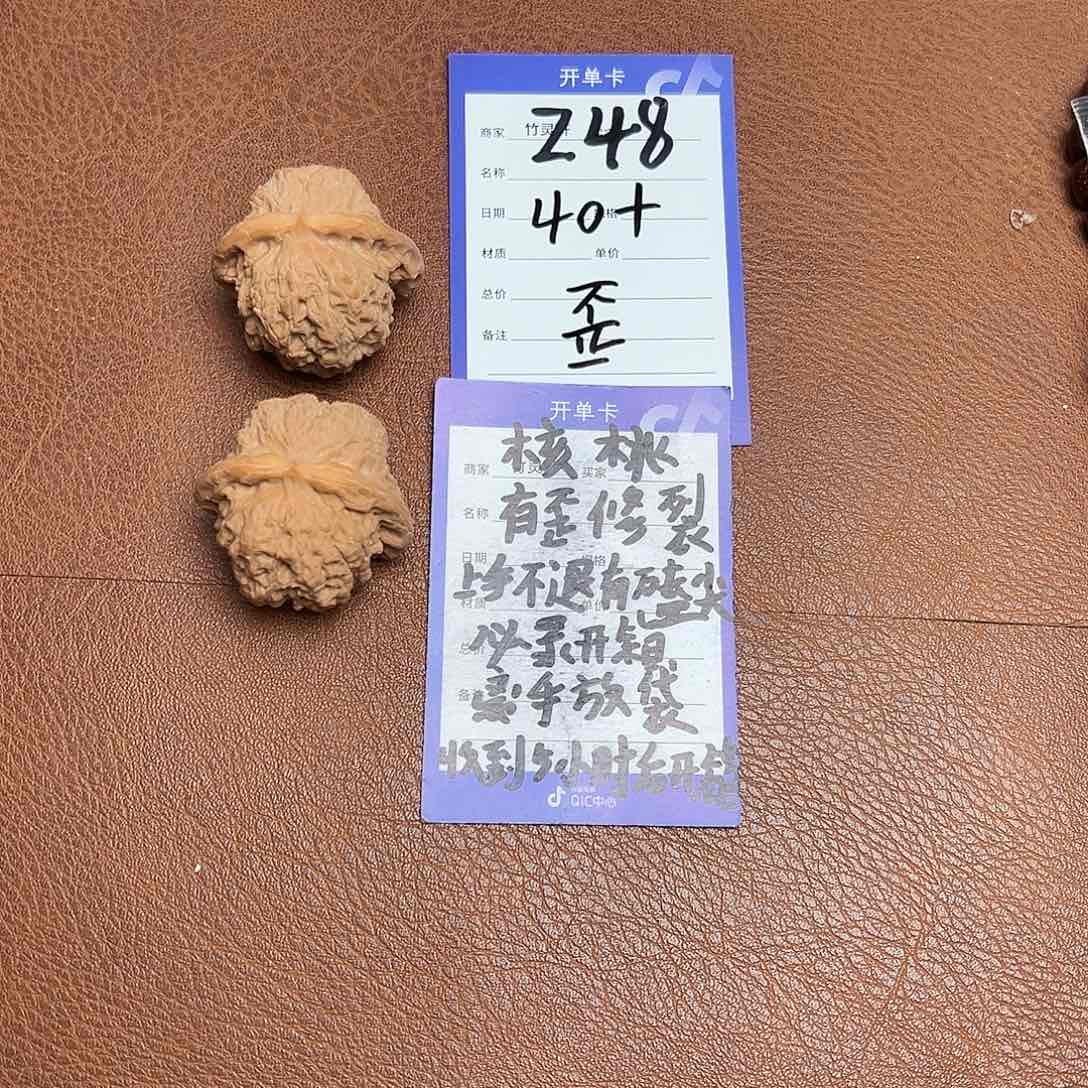 开单卡
商家 竹灵轩
Z48
名称
日期 格
40+
材质 单价
总价
歪
备注
开单卡
核桃
商家 买家
名称
有歪修裂
日期 规格
上手不退有磕尖
材质 单价
必录开箱
备注
手放袋
收到5小时后开箱
QIC中心